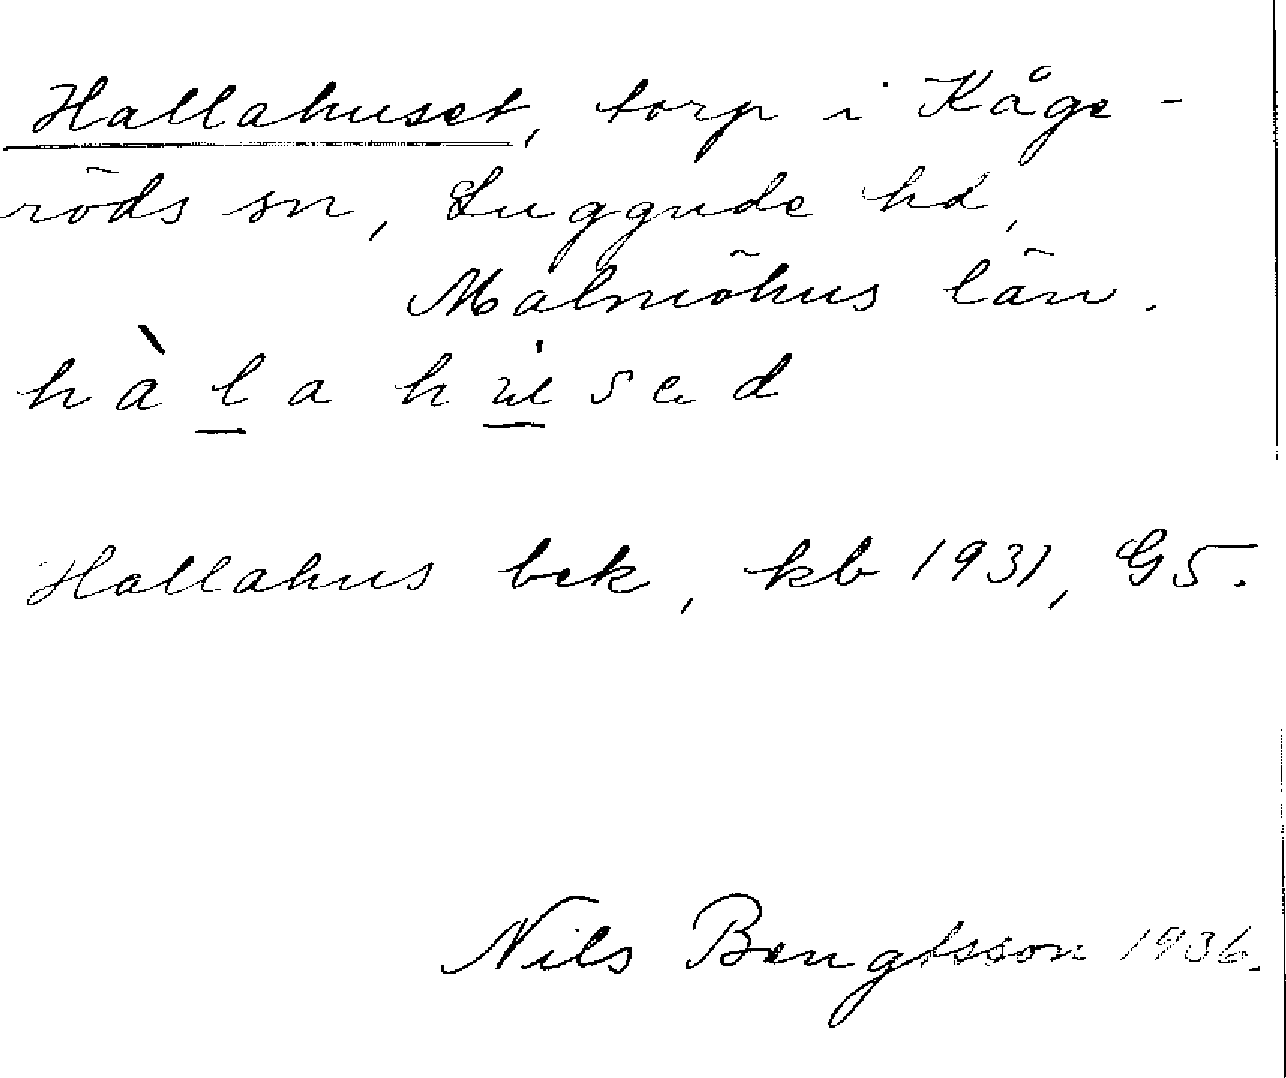 Hallahuset, torp i Kåge-
röds sn, Luggude hd,
Malmöhus län.
hàla hu̍sed
Hallahus bek, kb 1931, G5.
Nils Bengtsson 1936.